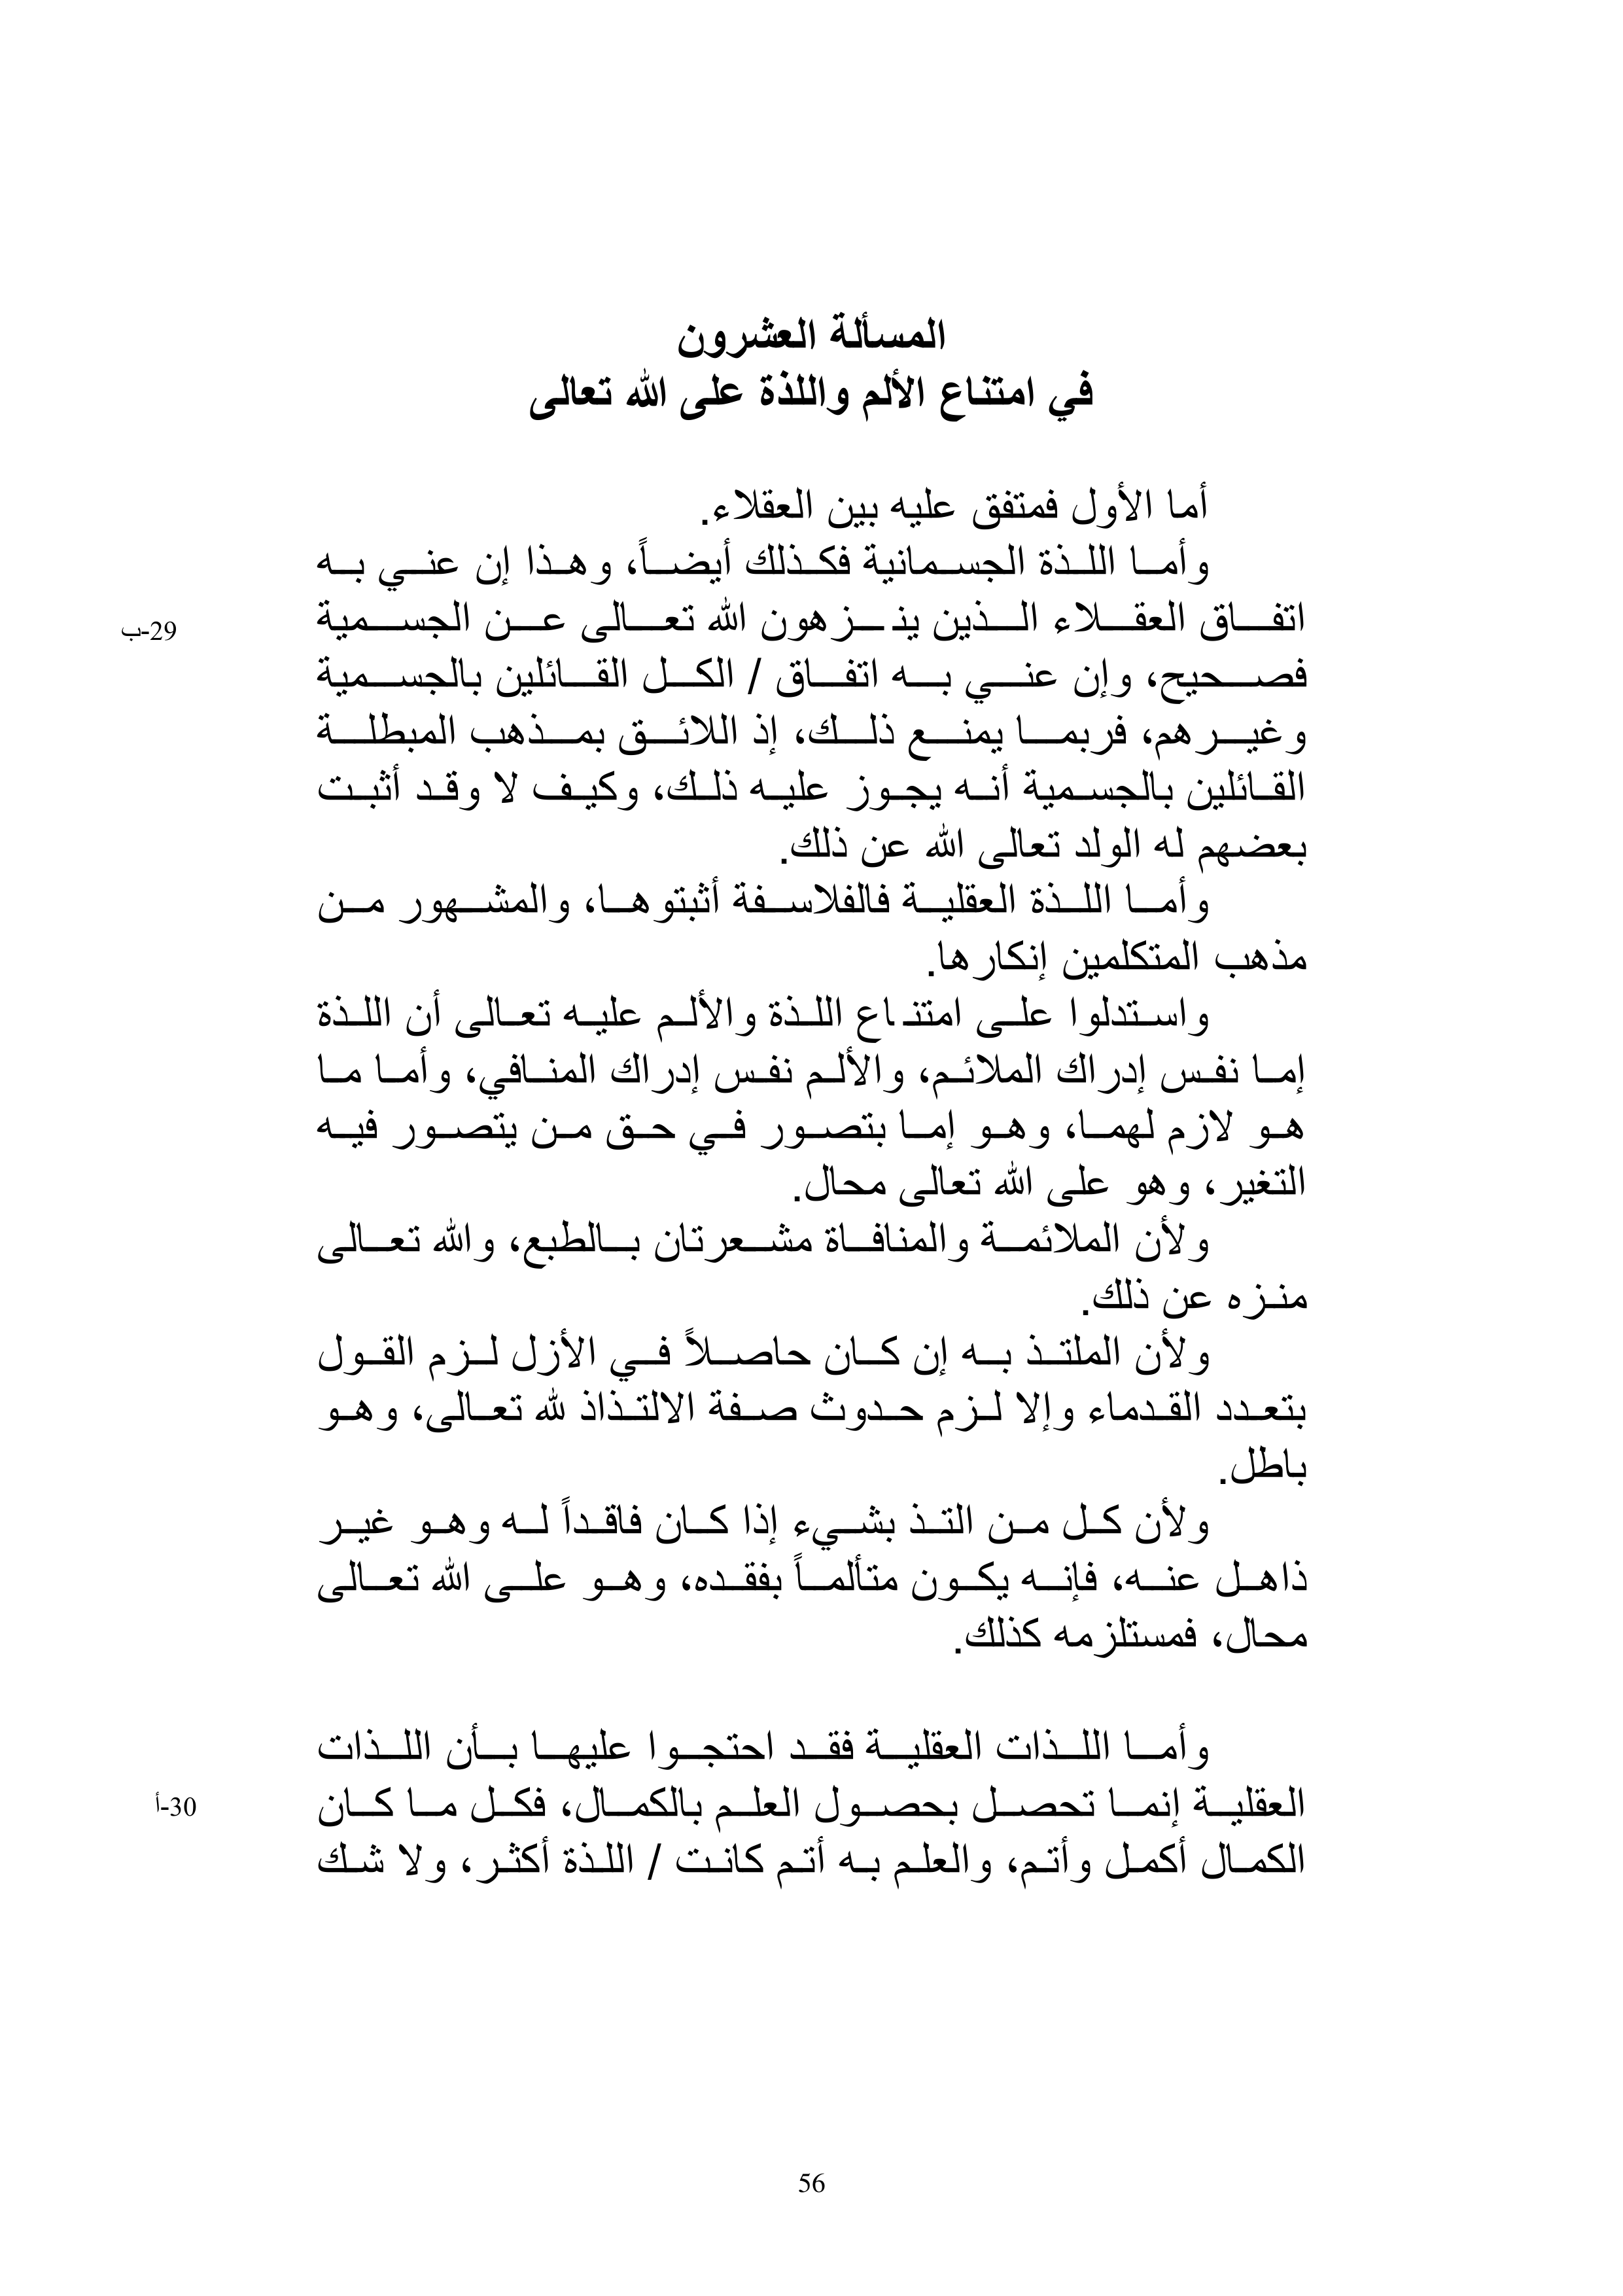 المسألة العشرون
في امتناع الألم واللذة على الله تعالى
أما الأول فمتفق عليه بين العقلاء.
وأما اللذة الجسمانية فكذلك أيضاً، وهذا إن عني به
اتفاق العقلاء الذين ينزهون الله تعالى عن الجسمية
29-ب
فصحيح، وإن عني به اتفاق / الكل القائلين بالجسمية
وغيرهم، فربما يمنع ذلك، إذ اللائق بمذهب المبطلة
القائلين بالجسمية أنه يجوز عليه ذلك، وكيف لا وقد أثبت
بعضهم له الولد تعالى الله عن ذلك.
وأما اللذة العقلية فالفلاسفة أثبتوها، والمشهور من
مذهب المتكلمين إنكارها.
واستدلوا على امتناع اللذة والألم عليه تعالى أن اللذة
إما نفس إدراك الملائم، والألم نفس إدراك المنافي، وأما ما
هو لازم لهما، وهو إما بتصور في حق من يتصور فيه
التغير، وهو على الله تعالى محال.
ولأن الملائمة والمنافاة مشعرتان بالطبع، والله تعالى
منزه عن ذلك.
ولأن الملتذ به إن كان حاصلاً في الأزل لزم القول
بتعدد القدماء وإلا لزم حدوث صفة الالتذاذ لله تعالى، وهو
باطل.
ولأن كل من التذ بشيء إذا كان فاقداً له وهو غير
ذاهل عنه، فإنه يكون متألماً بفقده، وهو على الله تعالى
محال، فمستلزمه كذلك.
وأما اللذات العقلية فقد احتجوا عليها بأن اللذات
العقلية إنما تحصل بحصول العلم بالكمال، فكل ما كان
30-أ
الكمال أكمل وأتم، والعلم به أتم كانت / اللذة أكثر، ولا شك
56